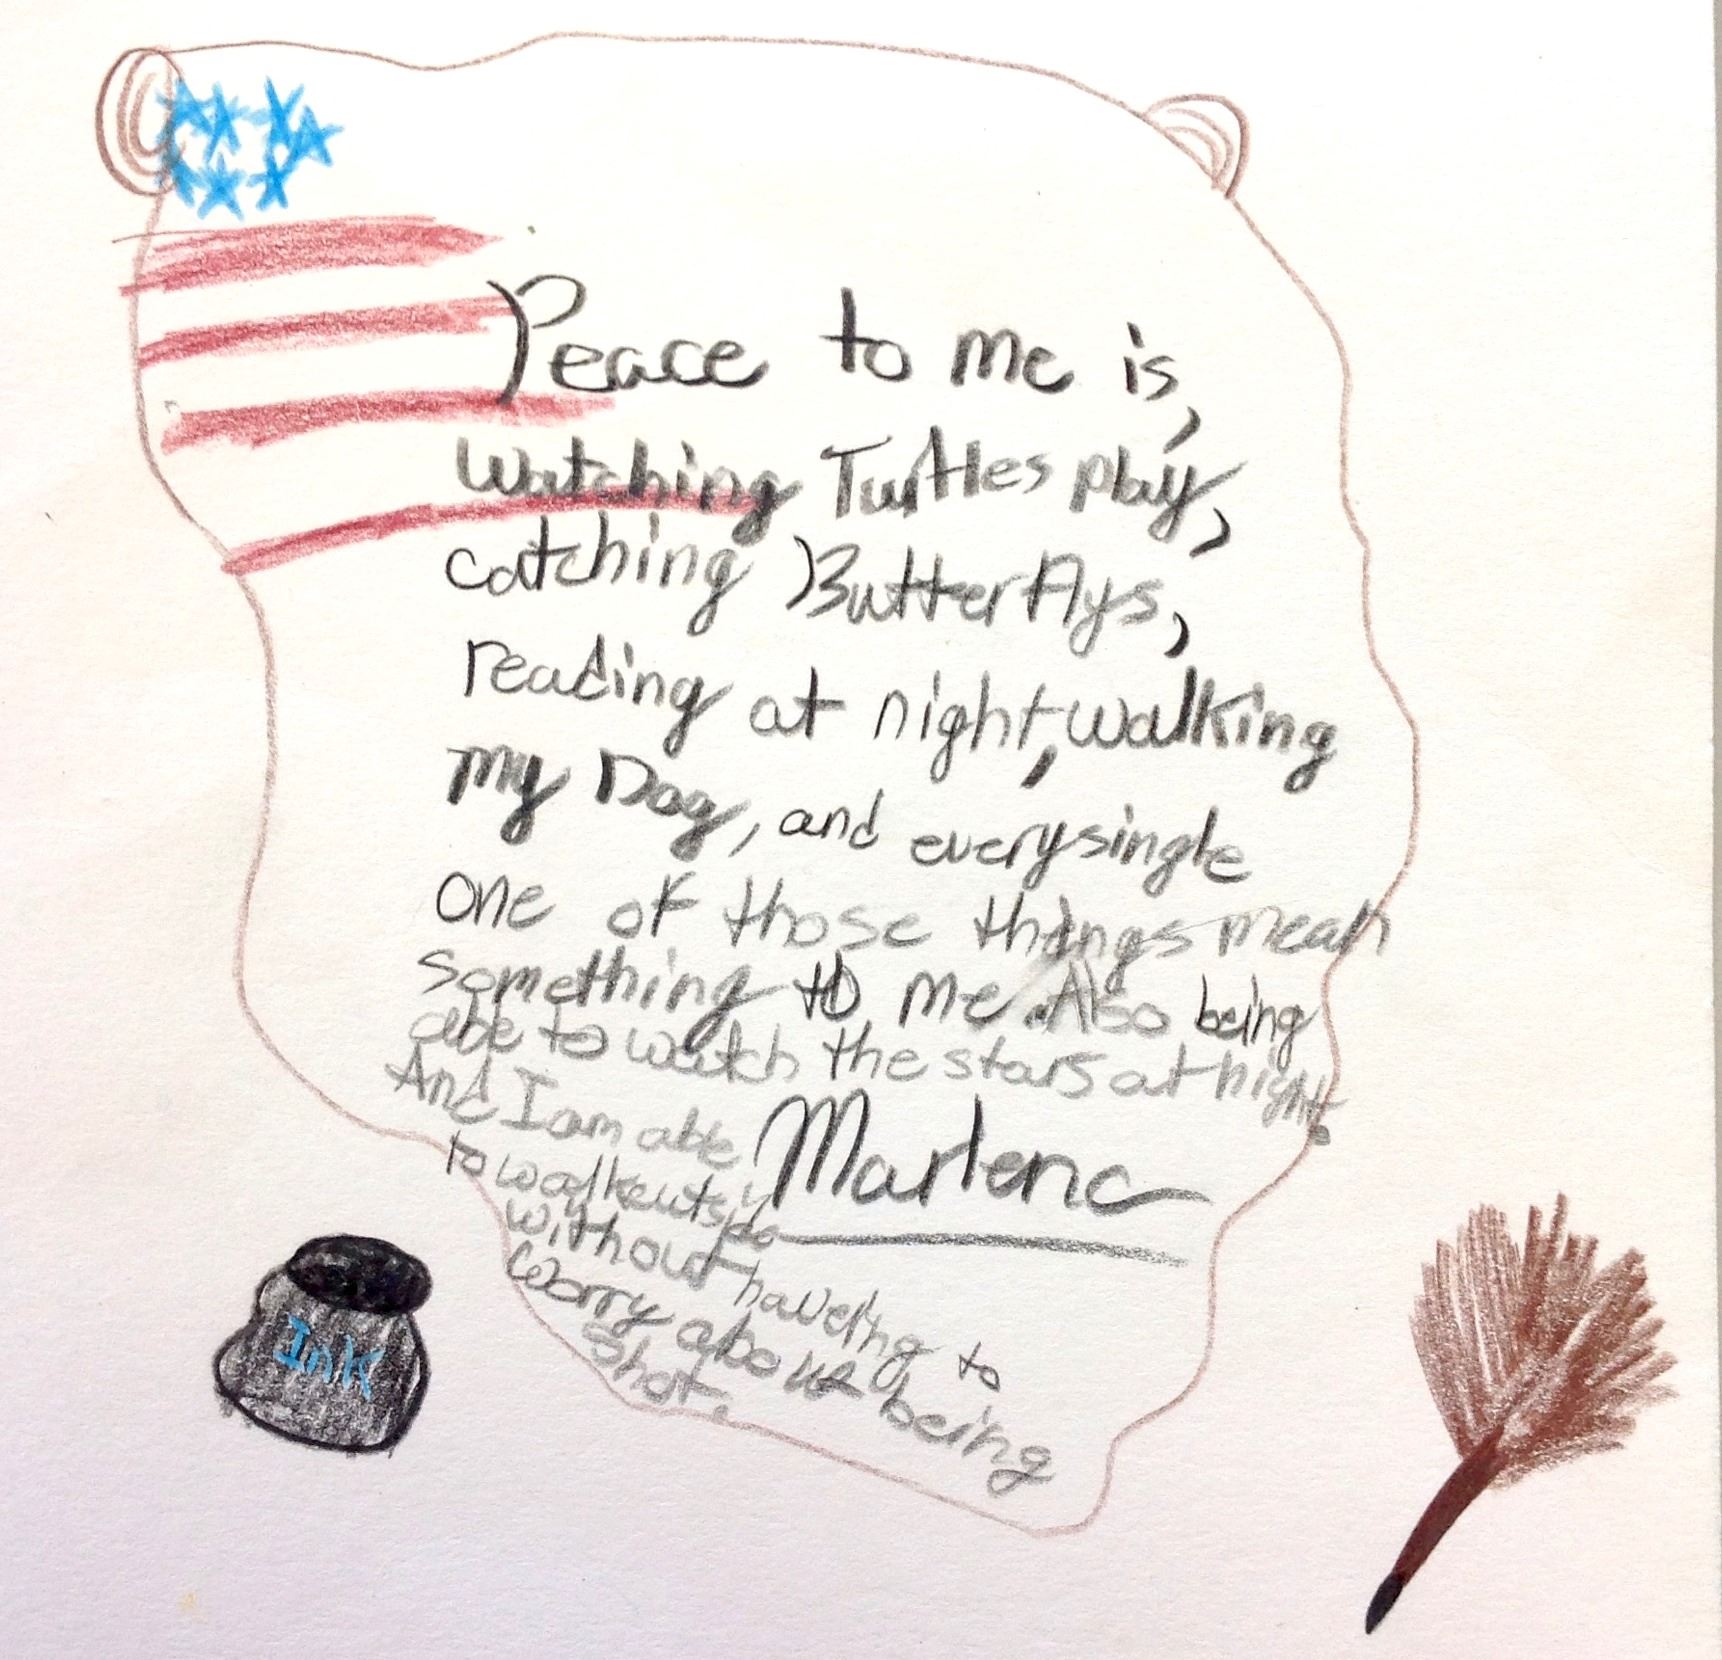 Peace to me is,
watching Turtles play,
catching Butterflys,
reading at night, walking
my Dog, and everysingle
one of those things mean
something to me. Also being
able to watch the stars at night.
And I am able
to walk outside
without haveing to
worry about being
shot.
Marlena
Ink